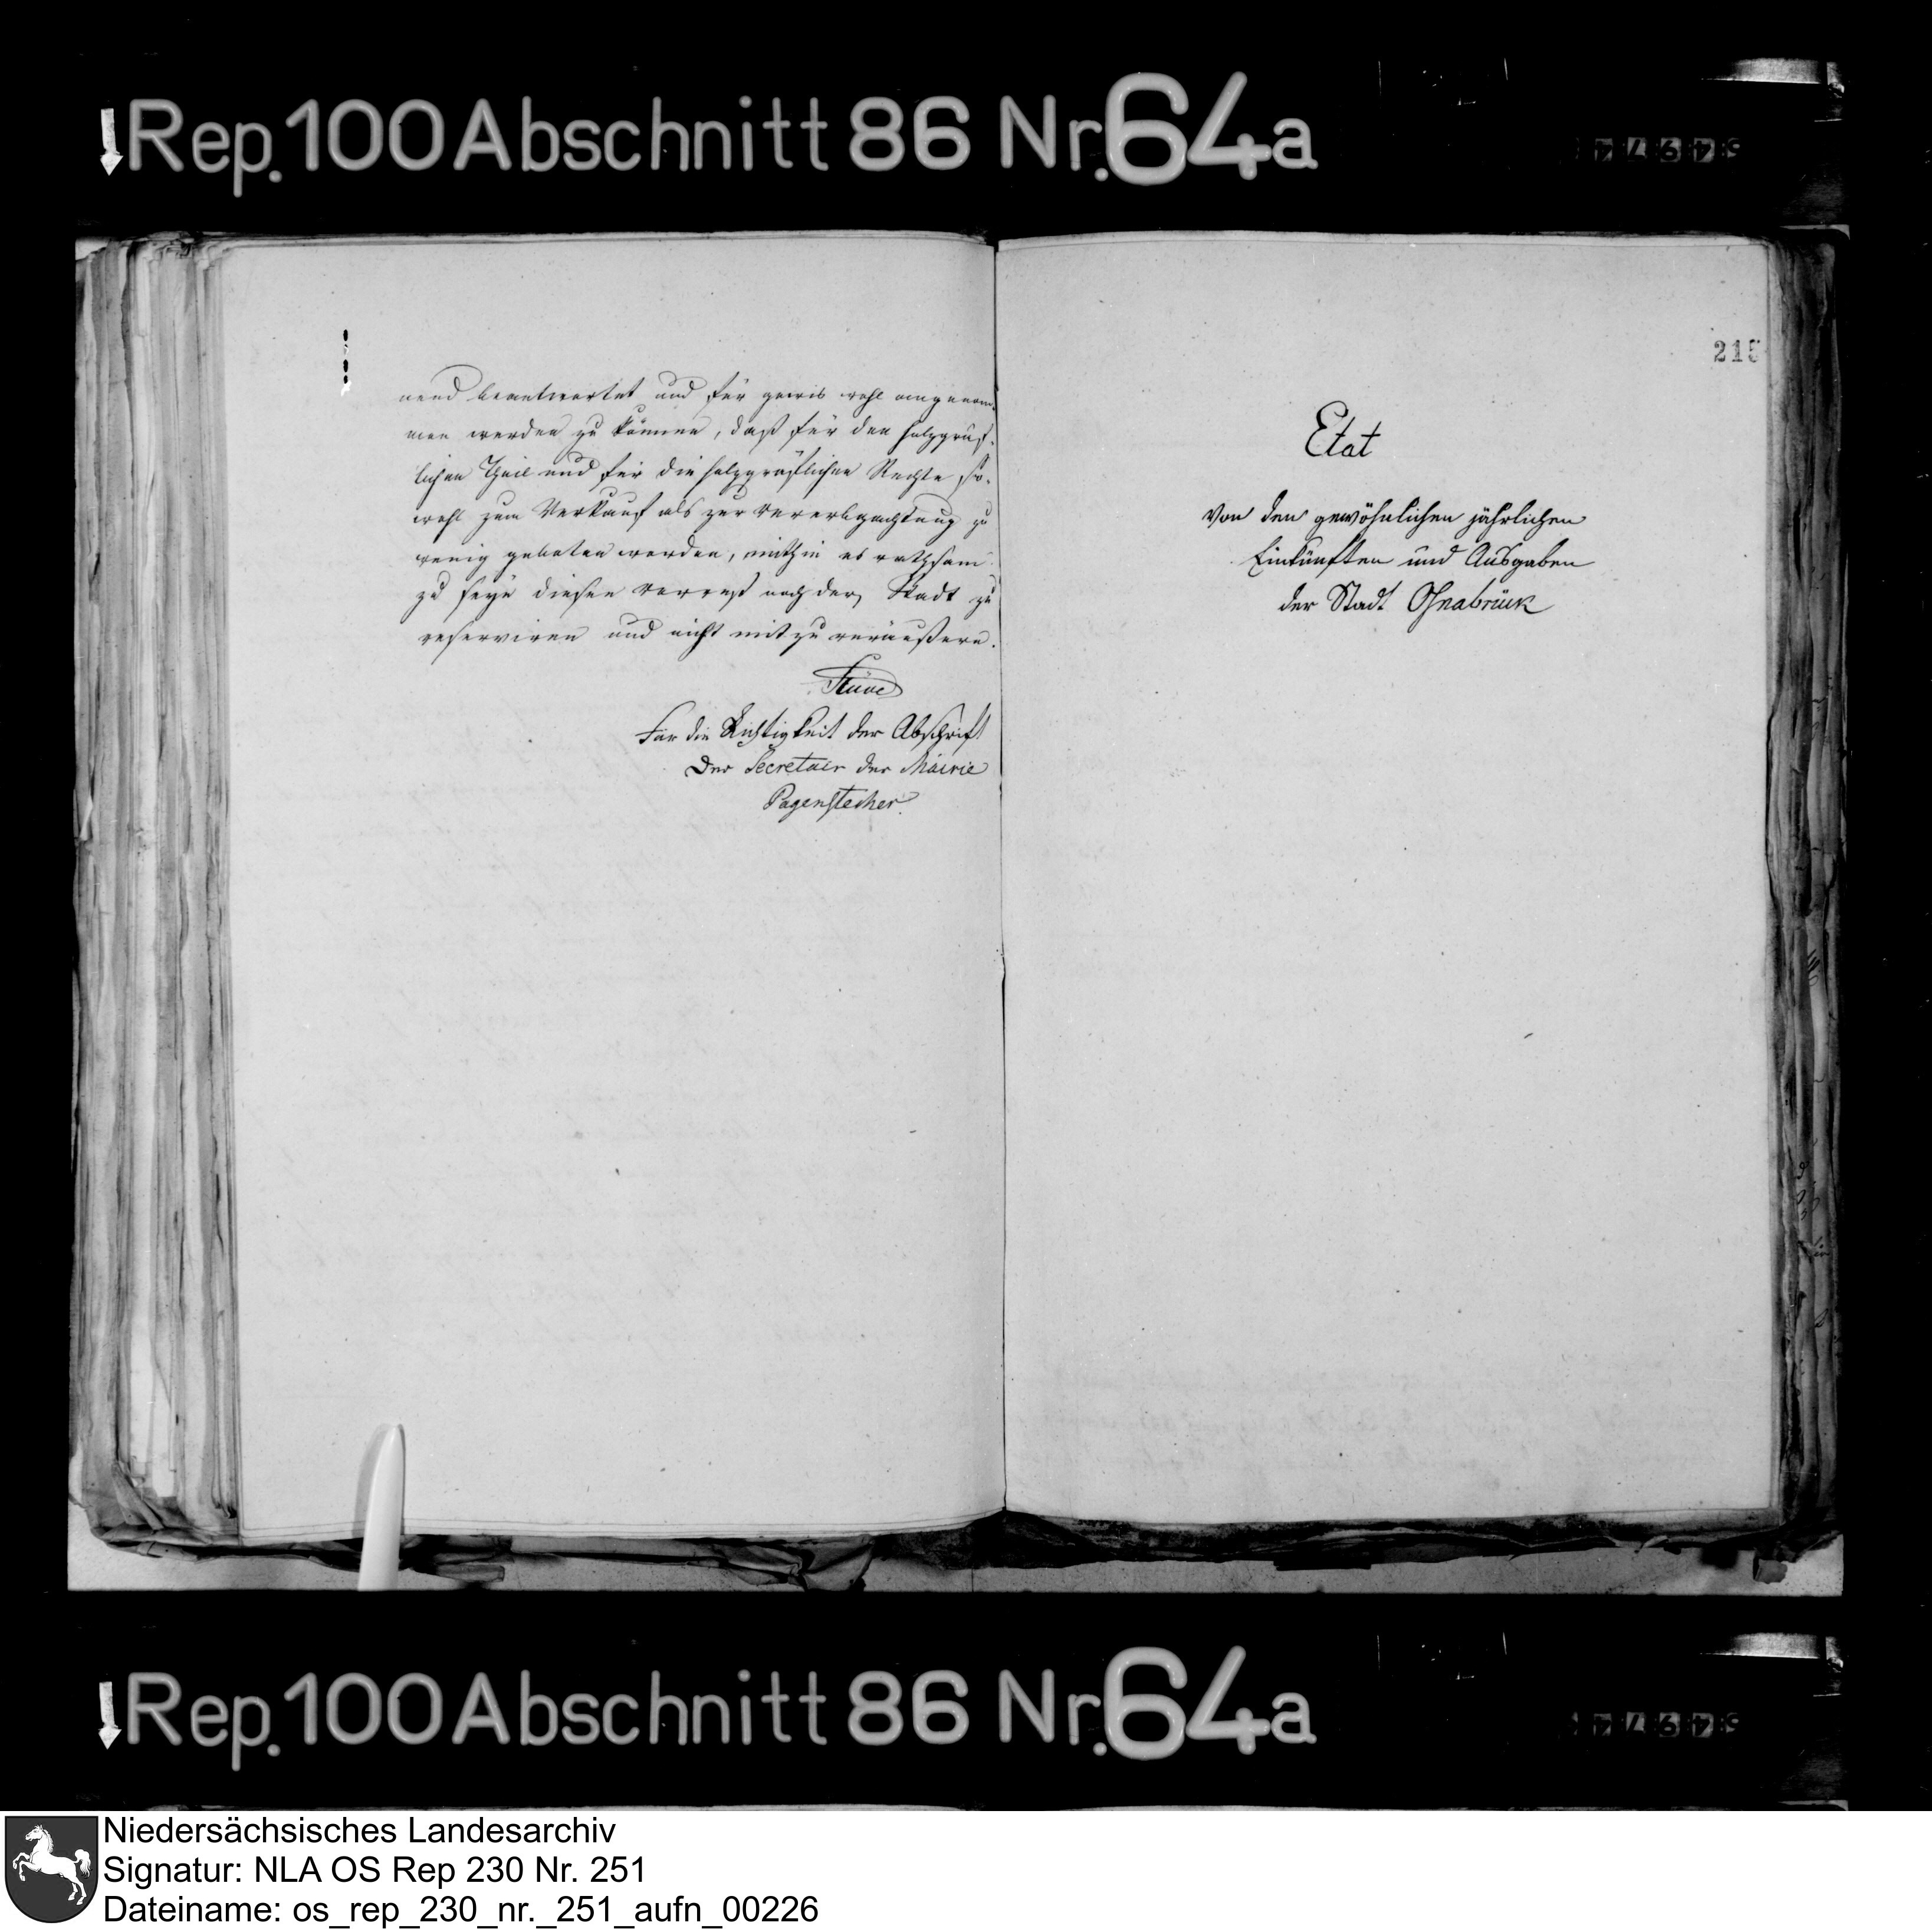 Rep. 100 Abschnitt 86 Nr. 64a
nend beantwortet und für gewis wohl angenom-
men werden zu können, daß für den holzgräf-
lichen Theil und für die holzgräflichen Rechte so-
wohl zum Verkauf als zur Vererbpachtung zu
wenig geboten worden, mithin es rathsam
zu seyn diesen noch der Stadt zu
reserviren und nicht mit zu veräußern.
Stüve
Für die Richtigkeit der Abschrift
Der Secretair der Mairie
Pagenstecher.
215
Etat
von den gewöhnlichen jährlichen
Einkünften und Ausgaben
der Stadt Osnabrück
Rep. 100 Abschnitt 86 Nr. 64a
Niedersächsisches Landesarchiv
Signatur: NLA OS Rep 230 Nr. 251
Dateiname: os_rep_230_nr._251_aufn_00226